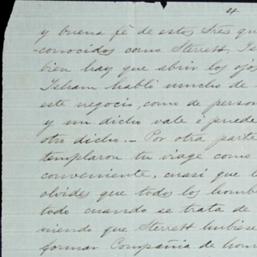 4
y buena fé de estos tres que
conocidos como Sterrett, Is
bien hay que abrir los ojos
Isham habló mucho de
este negocio, como de person
y un dicho vale ó puede
otro dicho. — Por otra parte
templaron tu viage como
conveniente, casi que te
olvides que todos los homb
todo cuando se trata de
siendo que Sterrett hubise
formar Compañia de hom